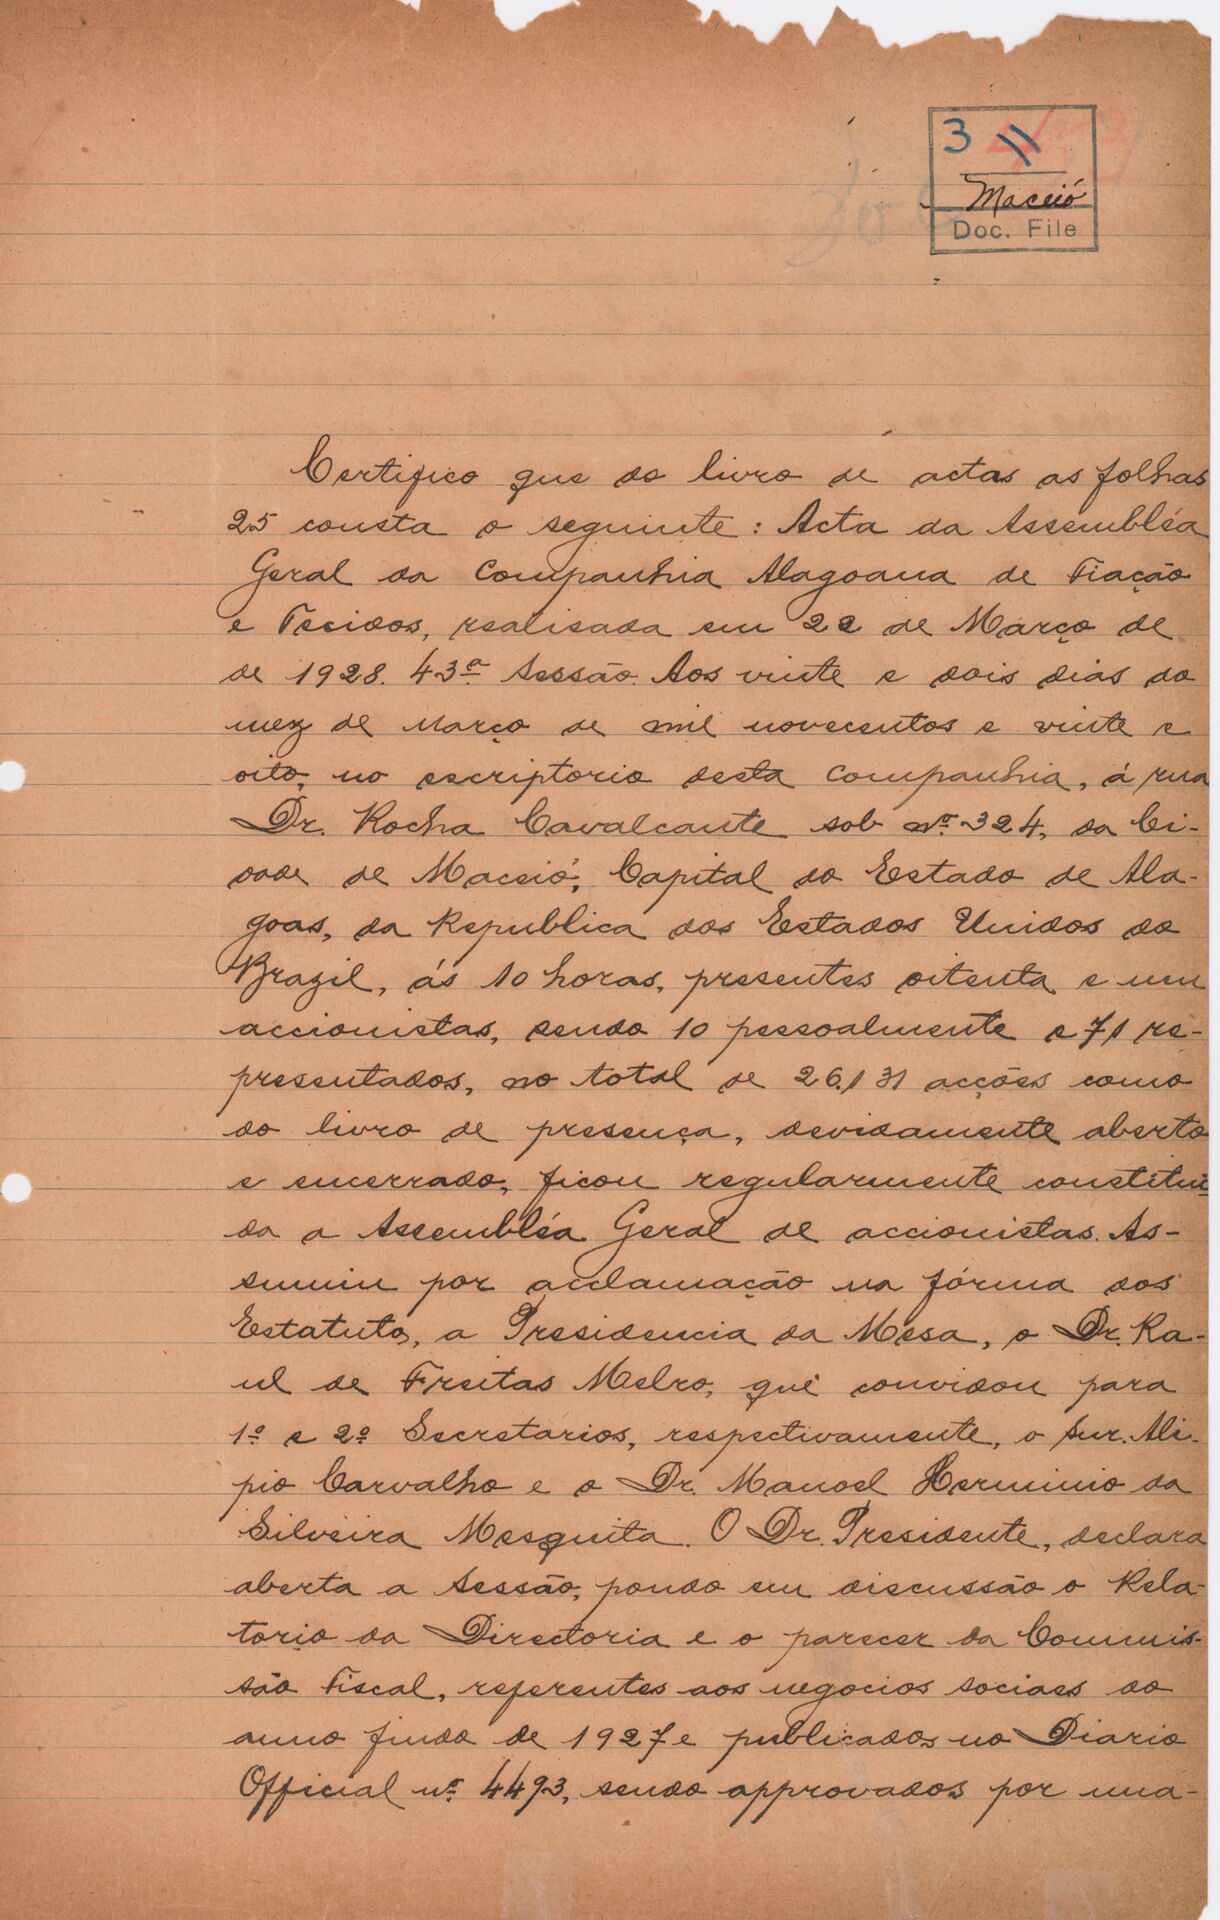 3 11
Maceió
Doc. File
Certifico que do livro de actas as folhas
25 consta o seguinte: Acta da Assembléa
Geral da Companhia Alagoana de Fiação
e Tecidos, realisada em 22 de Março de
de 1928. 43ª Sessão. Aos vinte e dois dias do
mez de Março de mil novecentos e vinte e
oito, no escriptorio desta Companhia, á rua
Dr. Rocha Cavalcante sob nº 324, da Ci-
dade de Maceió, Capital do Estado de Ala-
goas, da Republica dos Estados Unidos do
Brazil, ás 10 horas, presentes oitenta e um
accionistas, sendo 10 pessoalmente e 71 re-
presentados, no total de 26.131 acções como
do livro de presença, devidamente aberto
e encerrado, ficou regularmente constitui-
da a Assembléa Geral de accionistas. As-
sumiu por acclamação na fórma dos
Estatutos, a Presidencia da Mesa, o Dr. Ra-
ul de Freitas Melro, que convidou para
1º e 2º Secretarios, respectivamente, o Snr. Ali-
pio Carvalho e o Dr. Manoel Herminio da
Silveira Mesquita. O Dr. Presidente, declara
aberta a Sessão, pondo em discussão o Rela-
torio da Directoria e o parecer da Commis-
são Fiscal, referentes aos negocios sociaes do
anno findo de 1927 e publicados no Diario
Official nº 4493, sendo approvados por una-